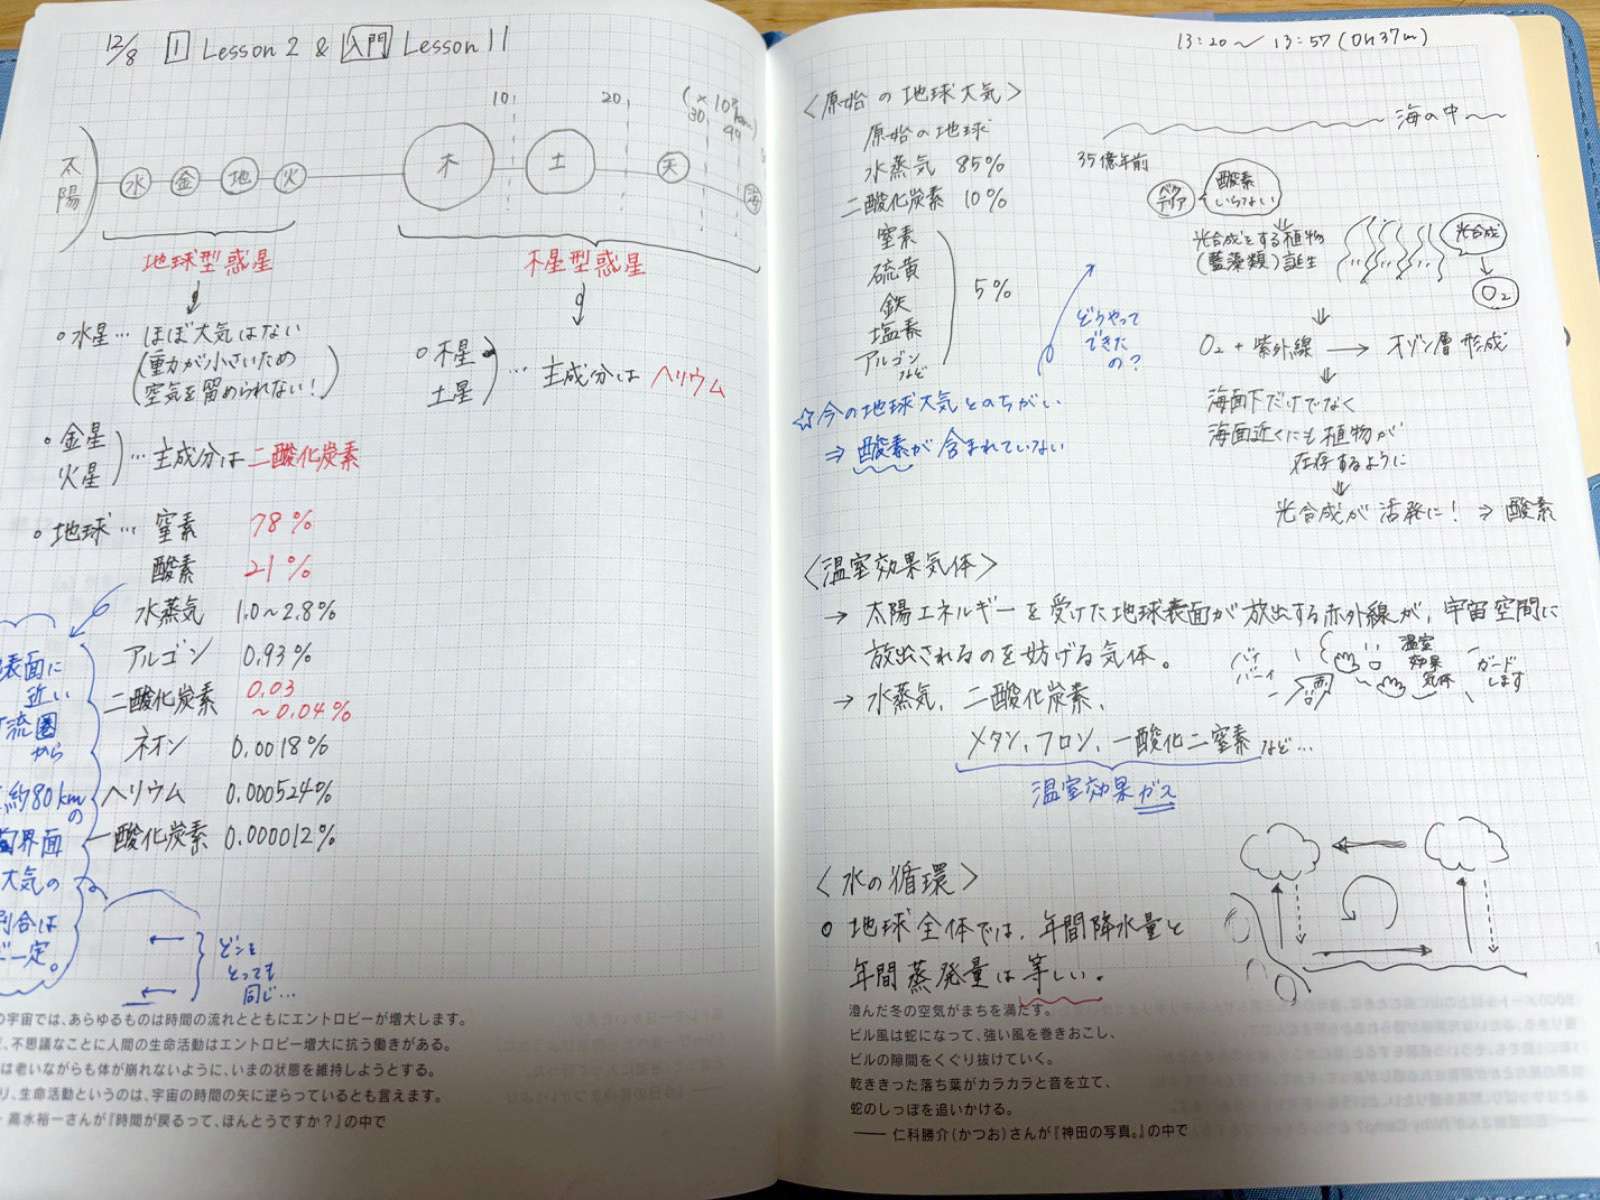 12/8 1 Lesson 2 & 入門 Lesson 11
太陽
水 金 地 火 木 土 天 海
10 20 30 40
地球型惑星
木星型惑星
水星… ほぼ大気はない
(重力が小さいため
空気を留められない!)
木星
土星
… 主成分は ヘリウム
金星
火星
…主成分は二酸化炭素
地球… 窒素 78%
酸素 21%
水蒸気 1.0~2.8%
アルゴン 0.93%
二酸化炭素 0.03
~0.04%
ネオン 0.0018%
ヘリウム 0.000524%
一酸化炭素 0.000012%
表面に
近い
流圏
から
約80kmの
界面
大気の
割合は
一定。
どこを
とっても
同じ…
宇宙では、あらゆるものは時間の流れとともにエントロピーが増大します。
、不思議なことに人間の生命活動はエントロピー増大に抗う働きがある。
は老いながらも体が崩れないように、いまの状態を維持しようとする。
り、生命活動というのは、宇宙の時間の矢に逆らっているとも言えます。
高水裕一さんが『時間が戻るって、ほんとうですか?』の中で
13:20~13:57(0h37m)
<原始の地球大気>
原始の地球
水蒸気 85%
二酸化炭素 10%
窒素
硫黄
鉄
塩素
アルゴン
など
5%
☆今の地球大気とのちがい
⇒ 酸素が含まれていない
どうやって
できた
の?
海の中
35億年前
バクテリア
酸素
いらない
光合成をする植物
(藍藻類)誕生
光合成
O₂
O₂ + 紫外線 → オゾン層形成
海面下だけでなく
海面近くにも植物が
在存するように
光合成が活発に! ⇒ 酸素
<温室効果気体>
→ 太陽エネルギーを受けた地球表面が放出する赤外線が、宇宙空間に
放出されるのを妨げる気体。
温室
効果
気体
ガード
します
→ 水蒸気、二酸化炭素、
メタン、フロン、一酸化二窒素など…
温室効果ガス
<水の循環>
地球全体では、年間降水量と
年間蒸発量は等しい。
澄んだ冬の空気がまちを満たす。
ビル風は蛇になって、強い風を巻きおこし、
ビルの隙間をくぐり抜けていく。
乾ききった落ち葉がカラカラと音を立て、
蛇のしっぽを追いかける。
── 仁科勝介(かつお)さんが『神田の写真。』の中で